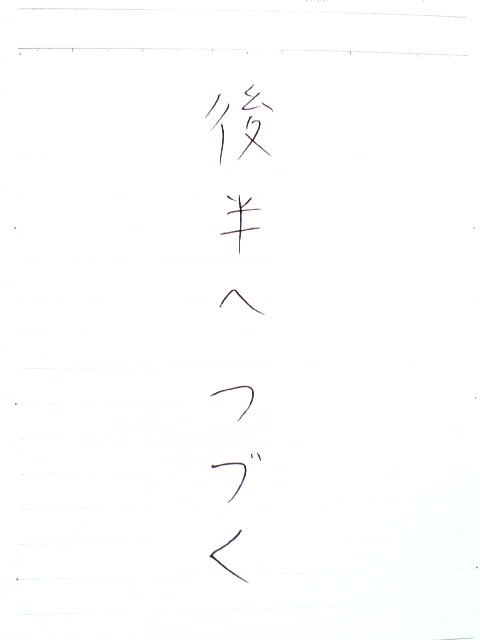 後半へつづく